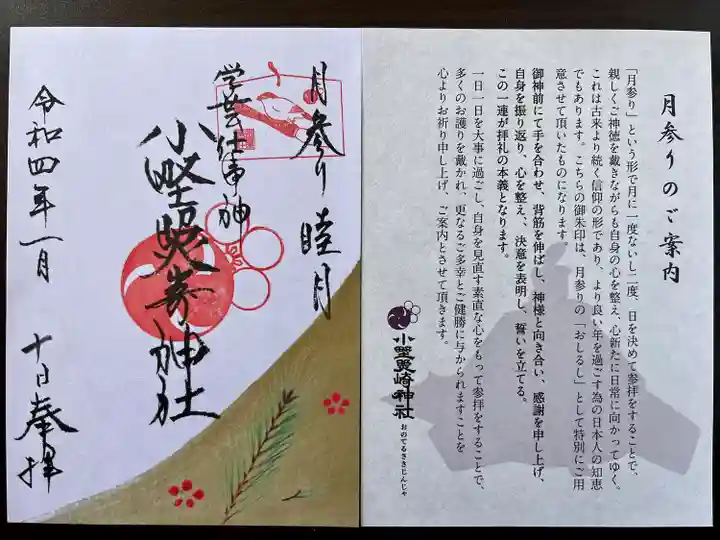 月参り 睦月
学芸仕事神
小野照崎神社
令和四年一月 十日奉拝
月参りのご案内
「月参り」という形で月に一度ないし二度、日を決めて参拝をすることで、
親しくご神徳を戴きながらも自身の心を整え、心新たに日常に向かってゆく。
これは古来より続く信仰の形であり、より良い年を過ごす為の日本人の知恵
でもあります。こちらの御朱印は、月参りの「おしるし」として特別にご用
意させて頂いたものになります。
御神前にて手を合わせ、背筋を伸ばし、神様と向き合い、感謝を申し上げ、
自身を振り返り、心を整え、決意を表明し、誓いを立てる。
この一連が拝礼の本義となります。
一日一日を大事に過ごし、自身を見直す素直な心をもって参拝をすることで、
多くのお護りを戴かれ、更なるご多幸とご健勝に与かられますことを
心よりお祈り申し上げ、ご案内とさせて頂きます。
小野照崎神社
おのてるさきじんじゃ